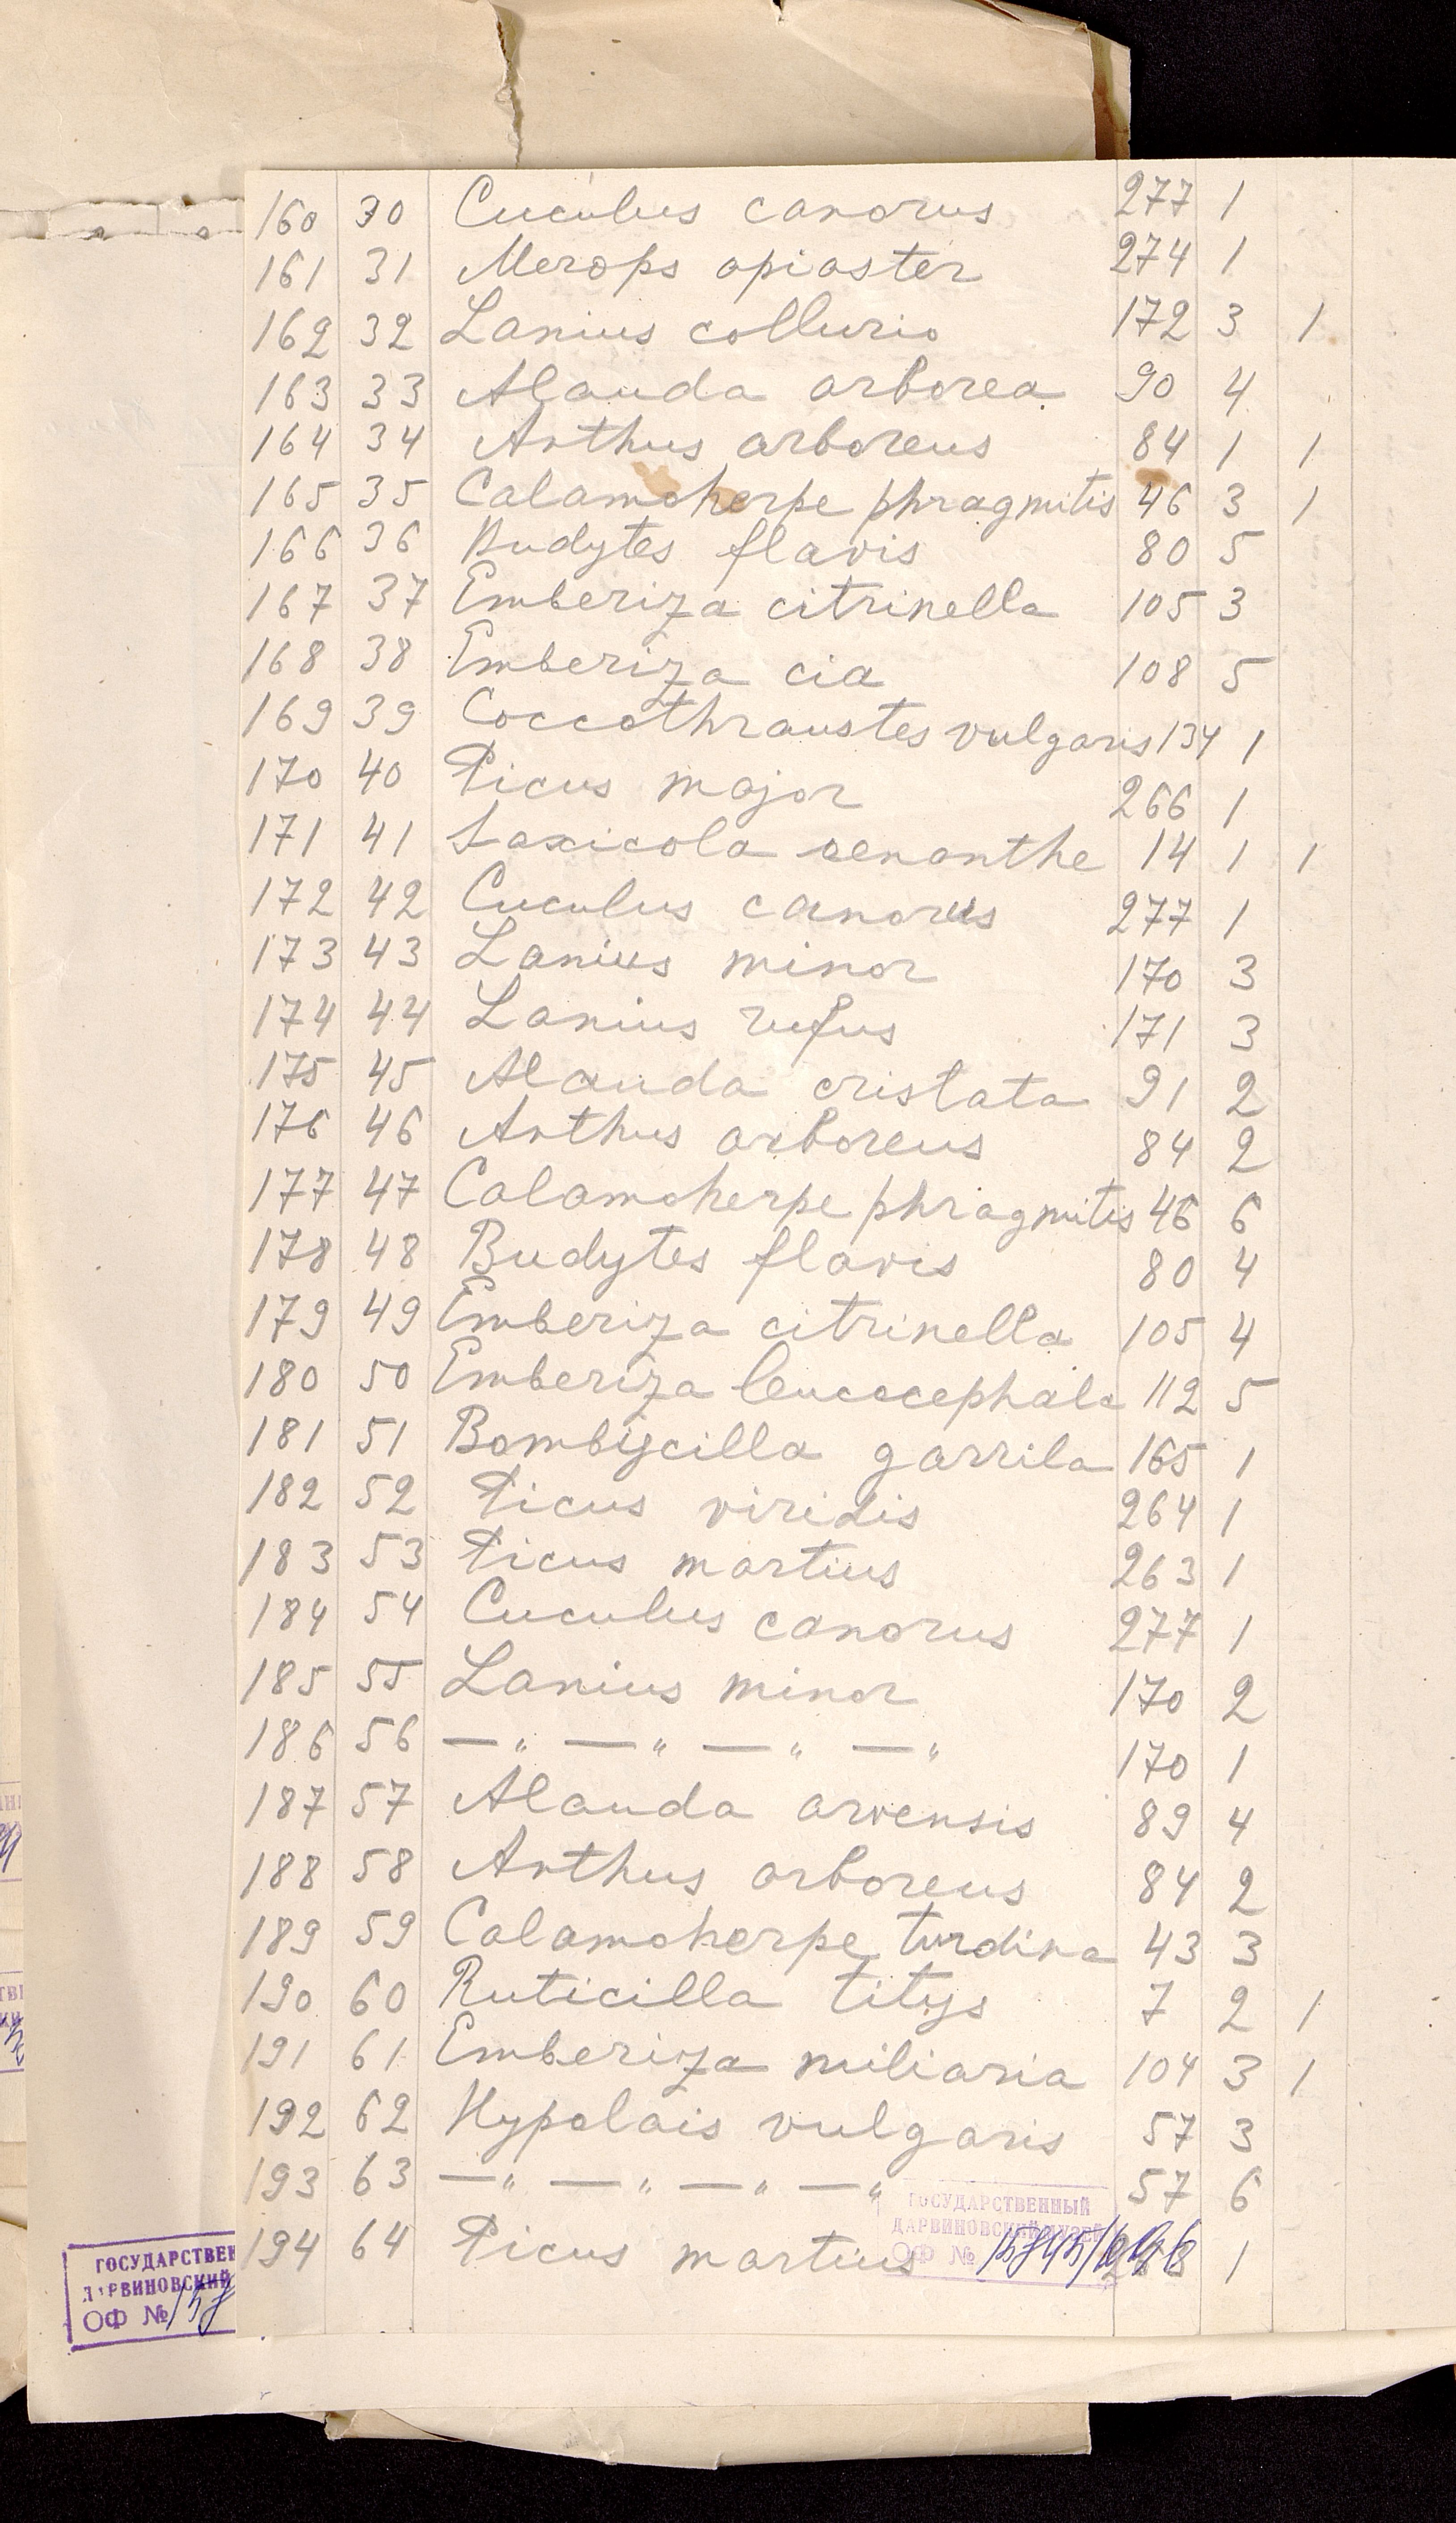 160 30 Cuculus canorus 277 1
161 31 Merops apiaster 274 1
162 32 Lanius collurio 172 3 1
163 33 Alauda arborea 90 4
164 34 Anthus arboreus 84 1 1
165 35 Calamoherpe phragmitis 46 3 1
166 36 Budytes flavis 80 5
167 37 Emberiza citrinella 105 3
168 38 Emberiza cia 108 5
169 39 Coccothraustes vulgaris 134 1
170 40 Picus major 266 1
171 41 Saxicola oenanthe 14 1 1
172 42 Cuculus canorus 277 1
173 43 Lanius minor 170 3
174 44 Lanius rufus 171 3
175 45 Alauda cristata 91 2
176 46 Anthus arboreus 84 2
177 47 Calamoherpe phragmitis 46 6
178 48 Budytes flavis 80 4
179 49 Emberiza citrinella 105 4
180 50 Emberiza leucocephala 112 5
181 51 Bombycilla garrila 165 1
182 52 Picus viridis 264 1
183 53 Picus martius 263 1
184 54 Cuculus canorus 277 1
185 55 Lanius minor 170 2
186 56 —"—"—"—" 170 1
187 57 Alauda arvensis 89 4
188 58 Anthus arboreus 84 2
189 59 Calamoherpe turdina 43 3
190 60 Ruticilla titys 7 2 1
191 61 Emberiza miliaria 104 3 1
192 62 Hypolais vulgaris 57 3
193 63 —"—"—"—" 57 6
194 64 Picus martius 1
ГОСУДАРСТВЕННЫЙ
ДАРВИНОВСКИЙ МУЗЕЙ
ОФ №
ГОСУДАРСТВЕН
ДАРВИНОВСКИЙ
ОФ №